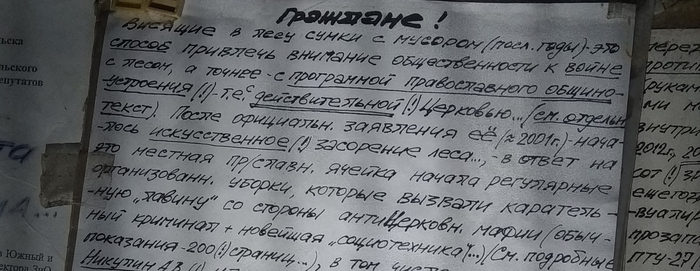 Граждане!
Висящие в лесу сумки с мусором (посл. годы) - это
способ привлечь внимание общественности к войне
с лесом, а точнее - с программой православного общино-
устроения (!) - т.е. с действительной (!) Церковью... (см. отдельн.
текст). После официальн. заявления её (≈ 2001г.) - нача-
лось искусственное (!) засорение леса..., - в ответ на
это местная пр/славн. ячейка начала регулярные
организованн. уборки, которые вызвали каратель-
ную "лавину" со стороны антиЦерковн. мафии (обыч-
ный криминал + новейшая "социотехника"...) (См. подробные
показания - 200 (!) страниц...), в том числе
Никулин А.В. (!)
льска
льского
депутатов
в Южный и
перех
против
рукам
внутри
2012г., 20
сот (!) зр
ежегод
вуали
прозап
ПТУ-27